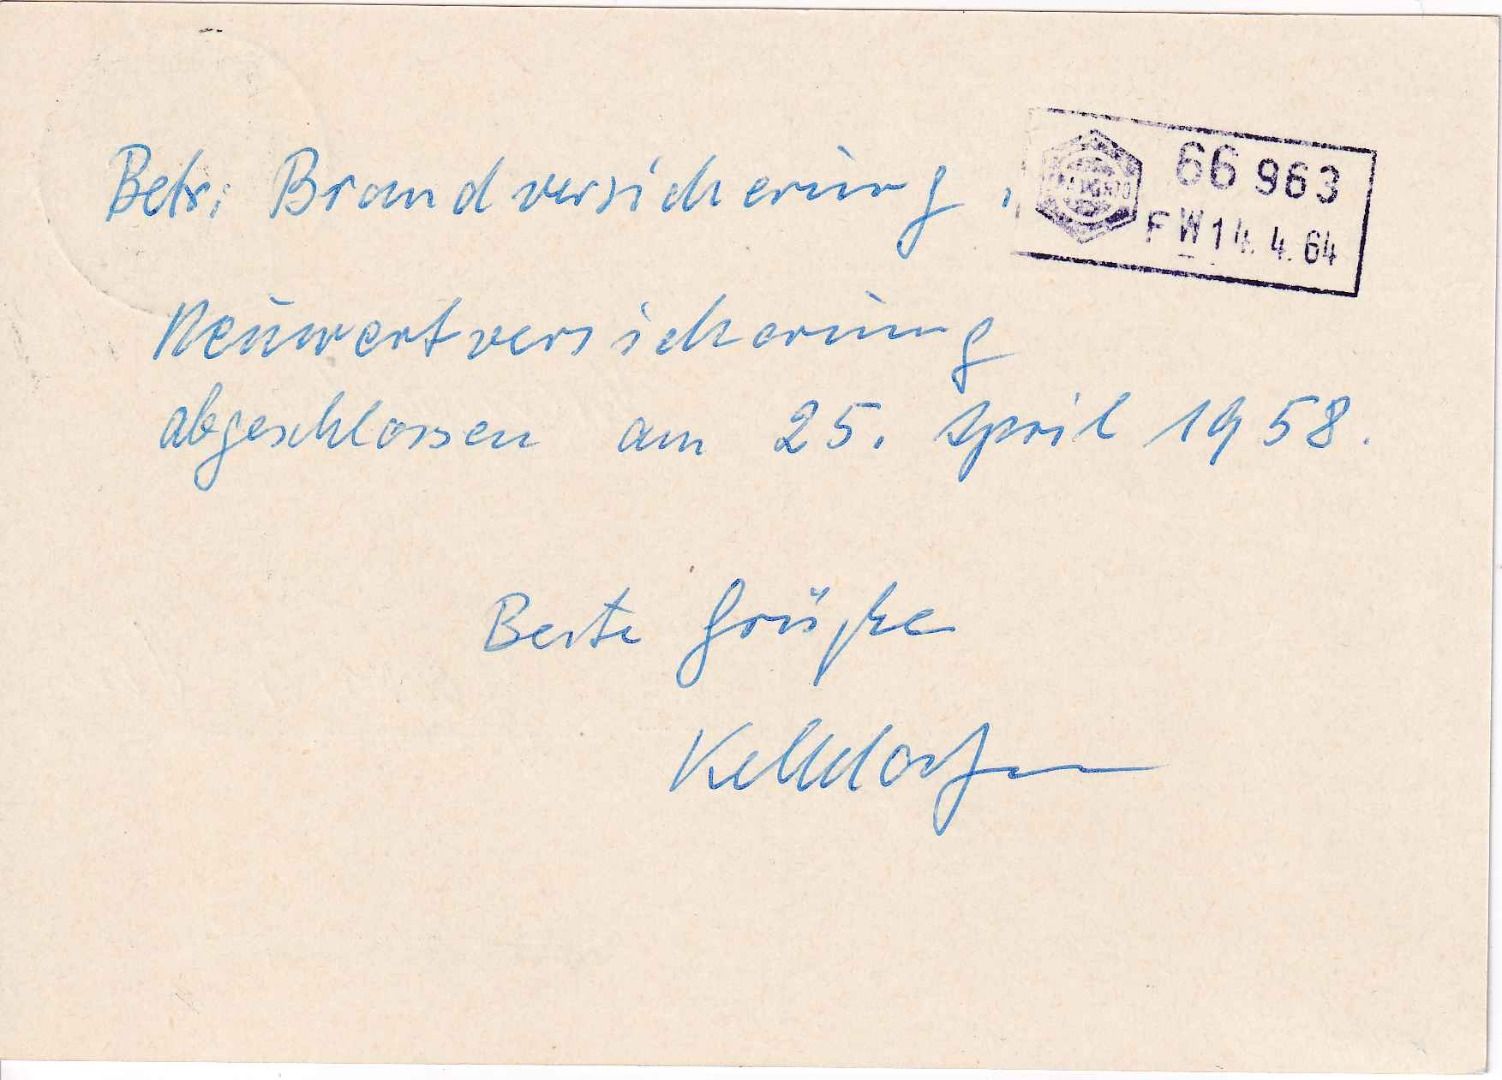 Betr.: Brandversicherung,
66 963
FW 14. 4. 64
Neuwertversicherung
abgeschlossen am 25. April 1958.
Beste Grüße